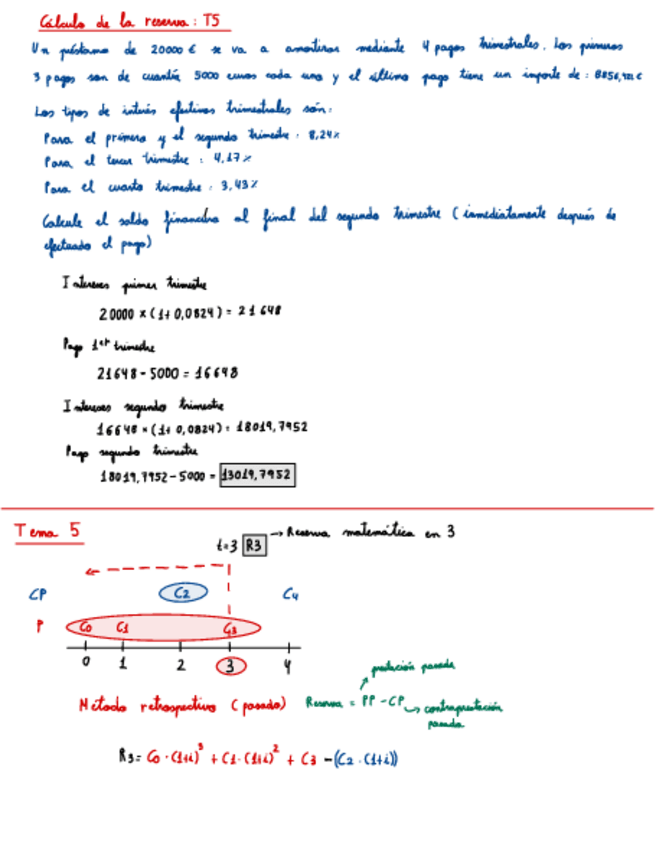 Cálculo de la reserva: T5
Un préstamo de 20000 € se va a amortizar mediante 4 pagos trimestrales. Los primeros
3 pagos son de cuantía 5000 euros cada uno y el último pago tiene un importe de:
Los tipos de interés efectivos trimestrales son:
Para el primero y el segundo trimestre: 8,24%
Para el tercer trimestre: 4,17%
Para el cuarto trimestre: 3,43%
Calcule el saldo financiero al final del segundo trimestre (inmediatamente después de
efectuado el pago)
Intereses primer trimestre
20000 × (1+0,0824) = 21648
Pago 1er trimestre
21648 - 5000 = 16648
Intereses segundo trimestre
16648 × (1+0,0824) = 18019,7952
Pago segundo trimestre
18019,7952 - 5000 = 13019,7952
Tema 5
t=3 R3 → Reserva matemática en 3
CP C2 C4
P C0 C1 C3
0 1 2 3 4
prestación pasada
Método retrospectivo (pasado) Reserva = PP - CP → contraprestación
pasada
R3 = C0 · (1+i)³ + C1 · (1+i)² + C3 - (C2 · (1+i))